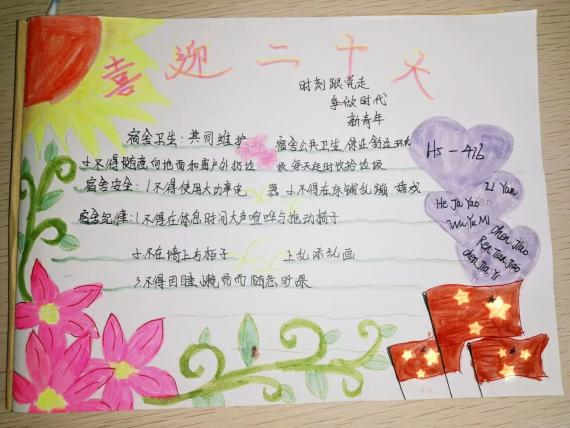 喜迎二十大
时刻跟党走
争做时代
新青年
宿舍卫生：共同维护 宿舍公共卫生，保证舍容环境，每天定时收拾垃圾
2不得随意向地面和窗户外扔垃圾
宿舍安全：1不得使用大功率电器 2不得在床铺乱蹦 嬉戏
宿舍纪律：1不得在休息时间大声喧哗与拖动椅子
2不在墙上与柜子上乱涂乱画
3不得因睡懒觉而随意旷课
H5-416
Li Yan
He Jia Yao
Wu Yu Mi
Chen Jiao
Ren Tian Jiao
chen Jia Yi